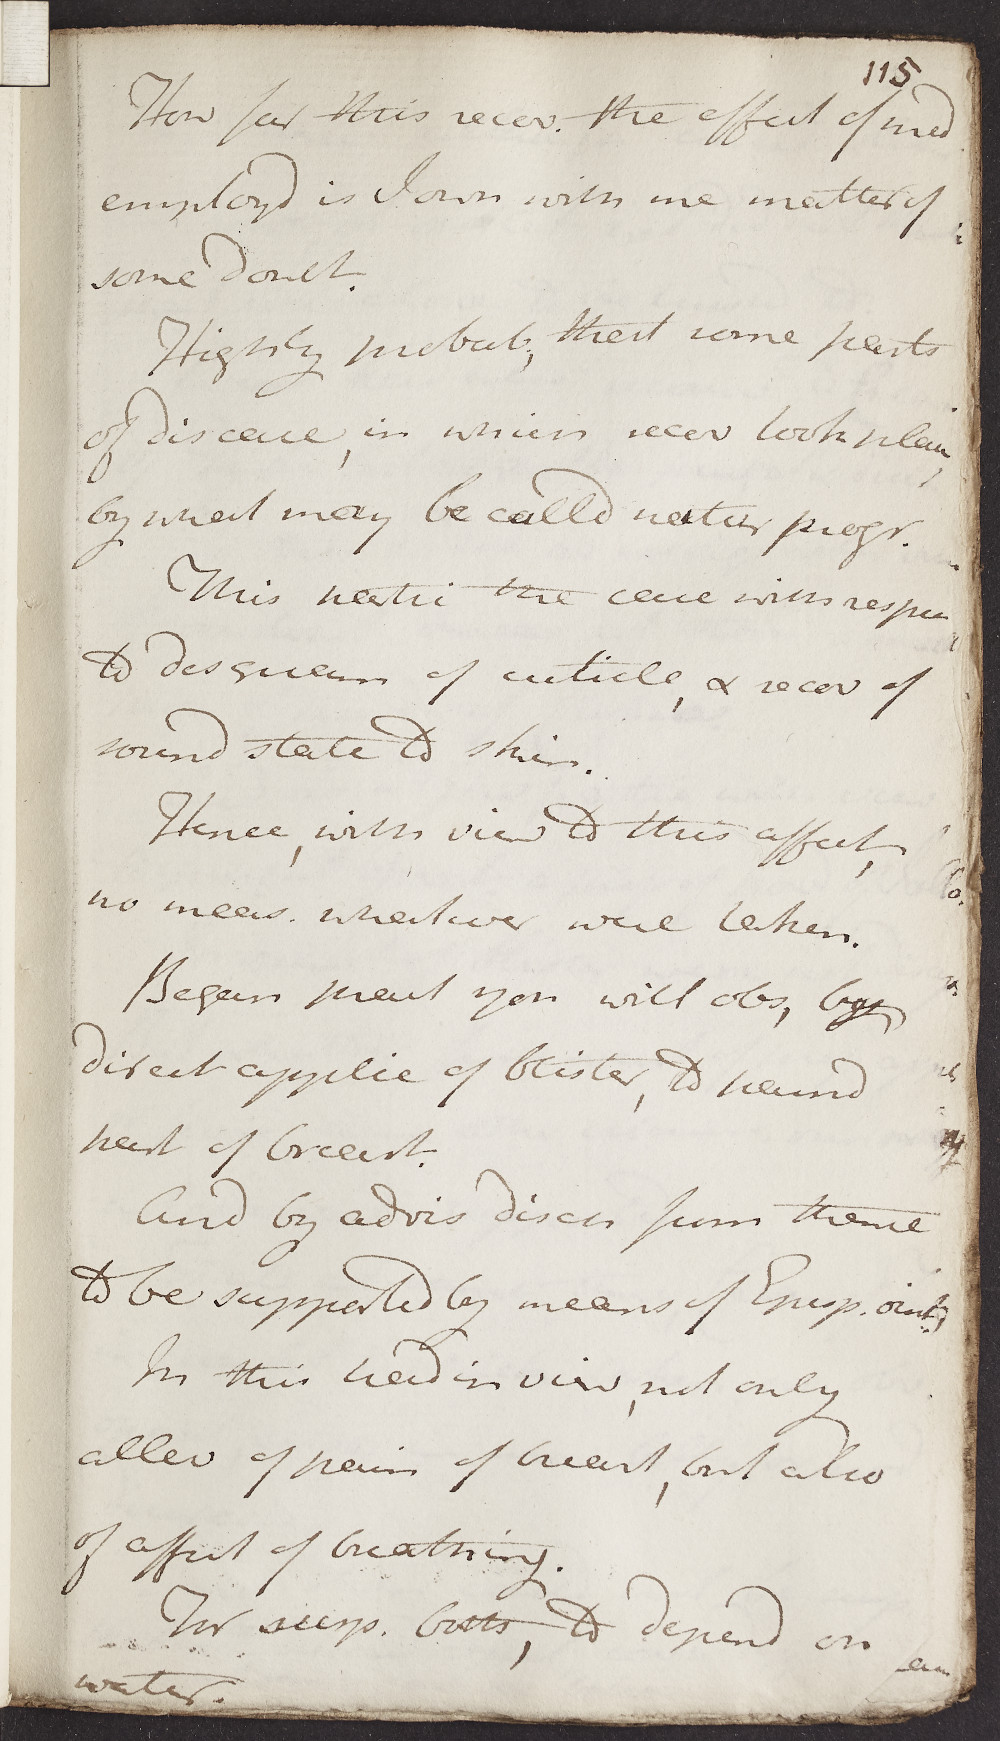 115
How far this recov. the effect of med
employd is I own with me matter of
some doubt.
Highly probab, that some parts
of disease, in which recov took place,
by what may be calld natur progr.
This partic the case with respec
to desquam of cuticle, & recov of
sound state to skin.
Hence, with view to this affect,
no meas. whatever were taken.
Began pract you will obs, by
direct applic of blister, to paind
part of breast.
And by advis disch from thence
to be supported by means of Epısp. oint,
In this had in view, not only
allev of pain of breast, but also
of affect of breathing.
For susp. both, to depend on
water.